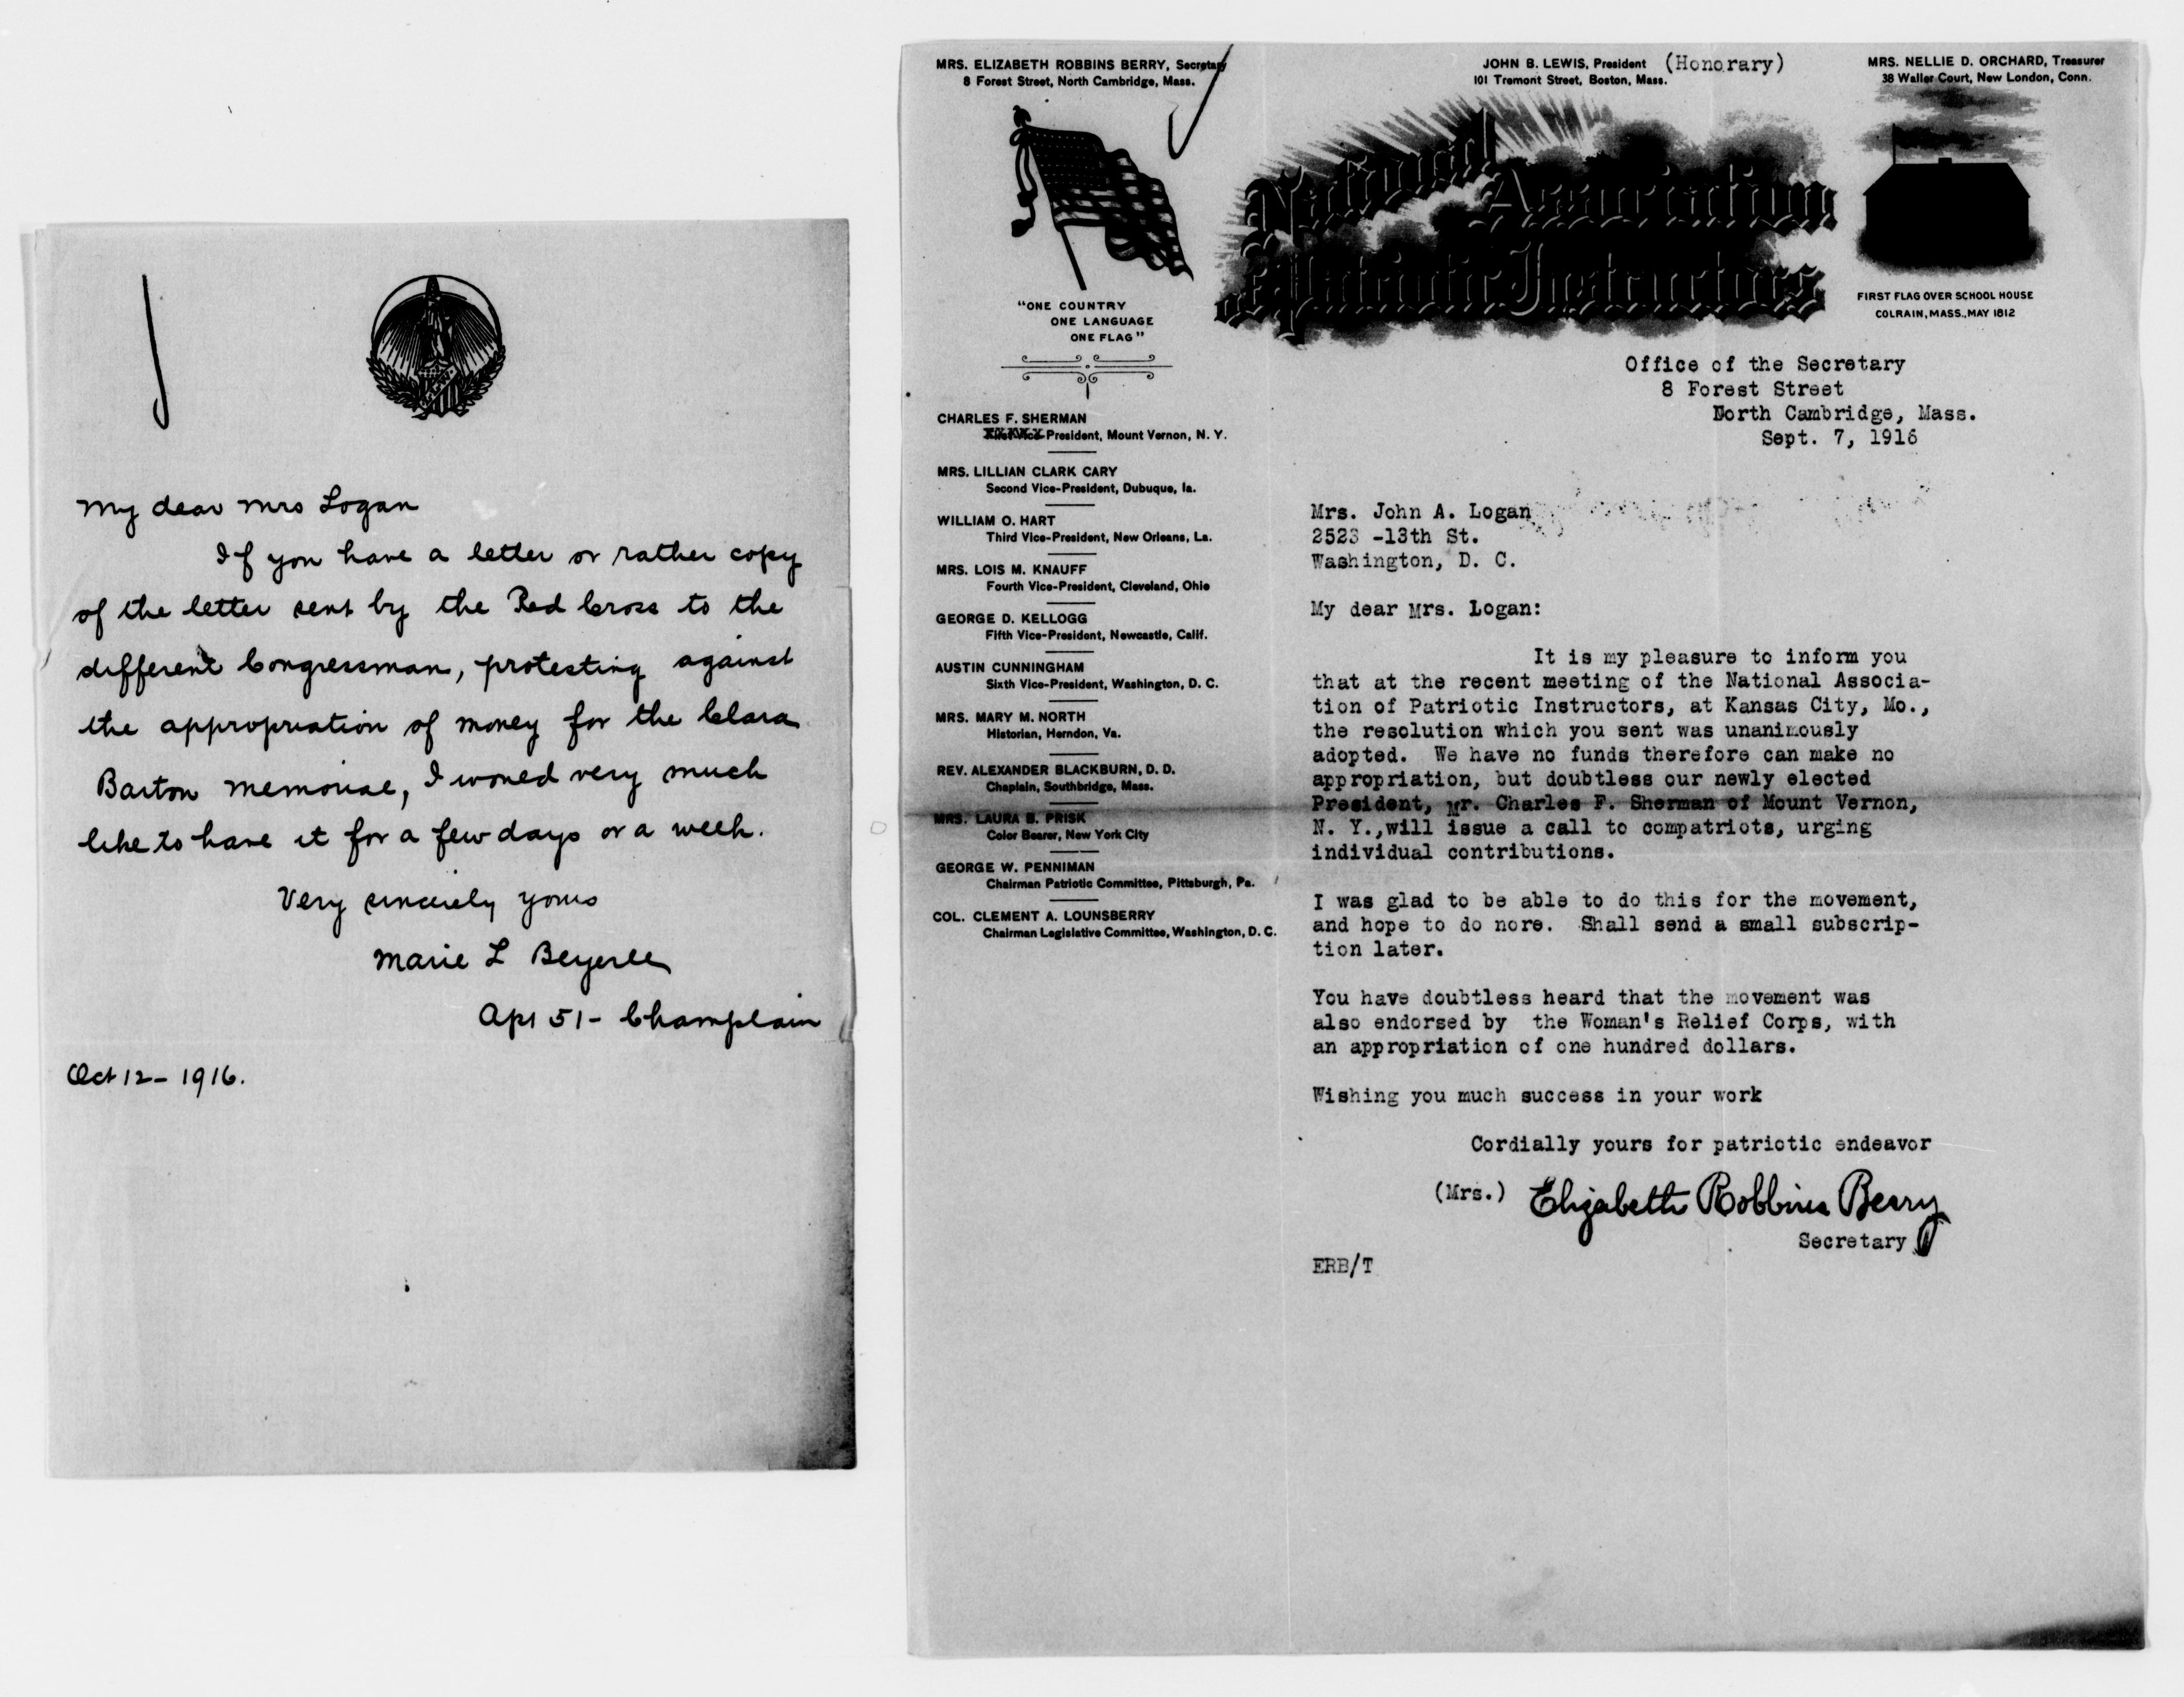 My dear Mrs Logan
If you have a letter or rather copy
of the letter sent by the Red Cross to the
different Congressman, protesting against
the appropriation of money for the Clara
Barton Memorial, I woued very much
like to have it for a few days or a week.
Very sincerely yours
Marie L Beyerle
Apt 51 - Champlain
Oct 12 - 1916.
MRS. ELIZABETH ROBBINS BERRY, Secretary
8 Forest Street, North Cambridge, Mass.
JOHN B. LEWIS, President (Honorary)
101 Tremont Street, Boston, Mass.
MRS. NELLIE D. ORCHARD, Treasurer
38 Waller Court, New London, Conn.
National Association
of Patriotic Instructors
"ONE COUNTRY
ONE LANGUAGE
ONE FLAG"
FIRST FLAG OVER SCHOOL HOUSE
COLRAIN, MASS., MAY 1812
CHARLES F. SHERMAN
President, Mount Vernon, N. Y.
MRS. LILLIAN CLARK CARY
Second Vice-President, Dubuque, Ia.
WILLIAM O. HART
Third Vice-President, New Orleans, La.
MRS. LOIS M. KNAUFF
Fourth Vice-President, Cleveland, Ohio
GEORGE D. KELLOGG
Fifth Vice-President, Newcastle, Calif.
AUSTIN CUNNINGHAM
Sixth Vice-President, Washington, D. C.
MRS. MARY M. NORTH
Historian, Herndon, Va.
REV. ALEXANDER BLACKBURN, D. D.
Chaplain, Southbridge, Mass.
MRS. LAURA B. PRISK
Color Bearer, New York City
GEORGE W. PENNIMAN
Chairman Patriotic Committee, Pittsburgh, Pa.
COL. CLEMENT A. LOUNSBERRY
Chairman Legislative Committee, Washington, D. C.
Office of the Secretary
8 Forest Street
North Cambridge, Mass.
Sept. 7, 1916
Mrs. John A. Logan
2523 -13th St.
Washington, D. C.
My dear Mrs. Logan:
It is my pleasure to inform you
that at the recent meeting of the National Associa-
tion of Patriotic Instructors, at Kansas City, Mo.,
the resolution which you sent was unanimously
adopted. We have no funds therefore can make no
appropriation, but doubtless our newly elected
President, Mr. Charles F. Sherman of Mount Vernon,
N. Y.,will issue a call to compatriots, urging
individual contributions.
I was glad to be able to do this for the movement,
and hope to do nore. Shall send a small subscrip-
tion later.
You have doubtless heard that the movement was
also endorsed by the Woman's Relief Corps, with
an appropriation of one hundred dollars.
Wishing you much success in your work
Cordially yours for patriotic endeavor
(Mrs.) Elizabeth Robbins Berry
Secretary
ERB/T